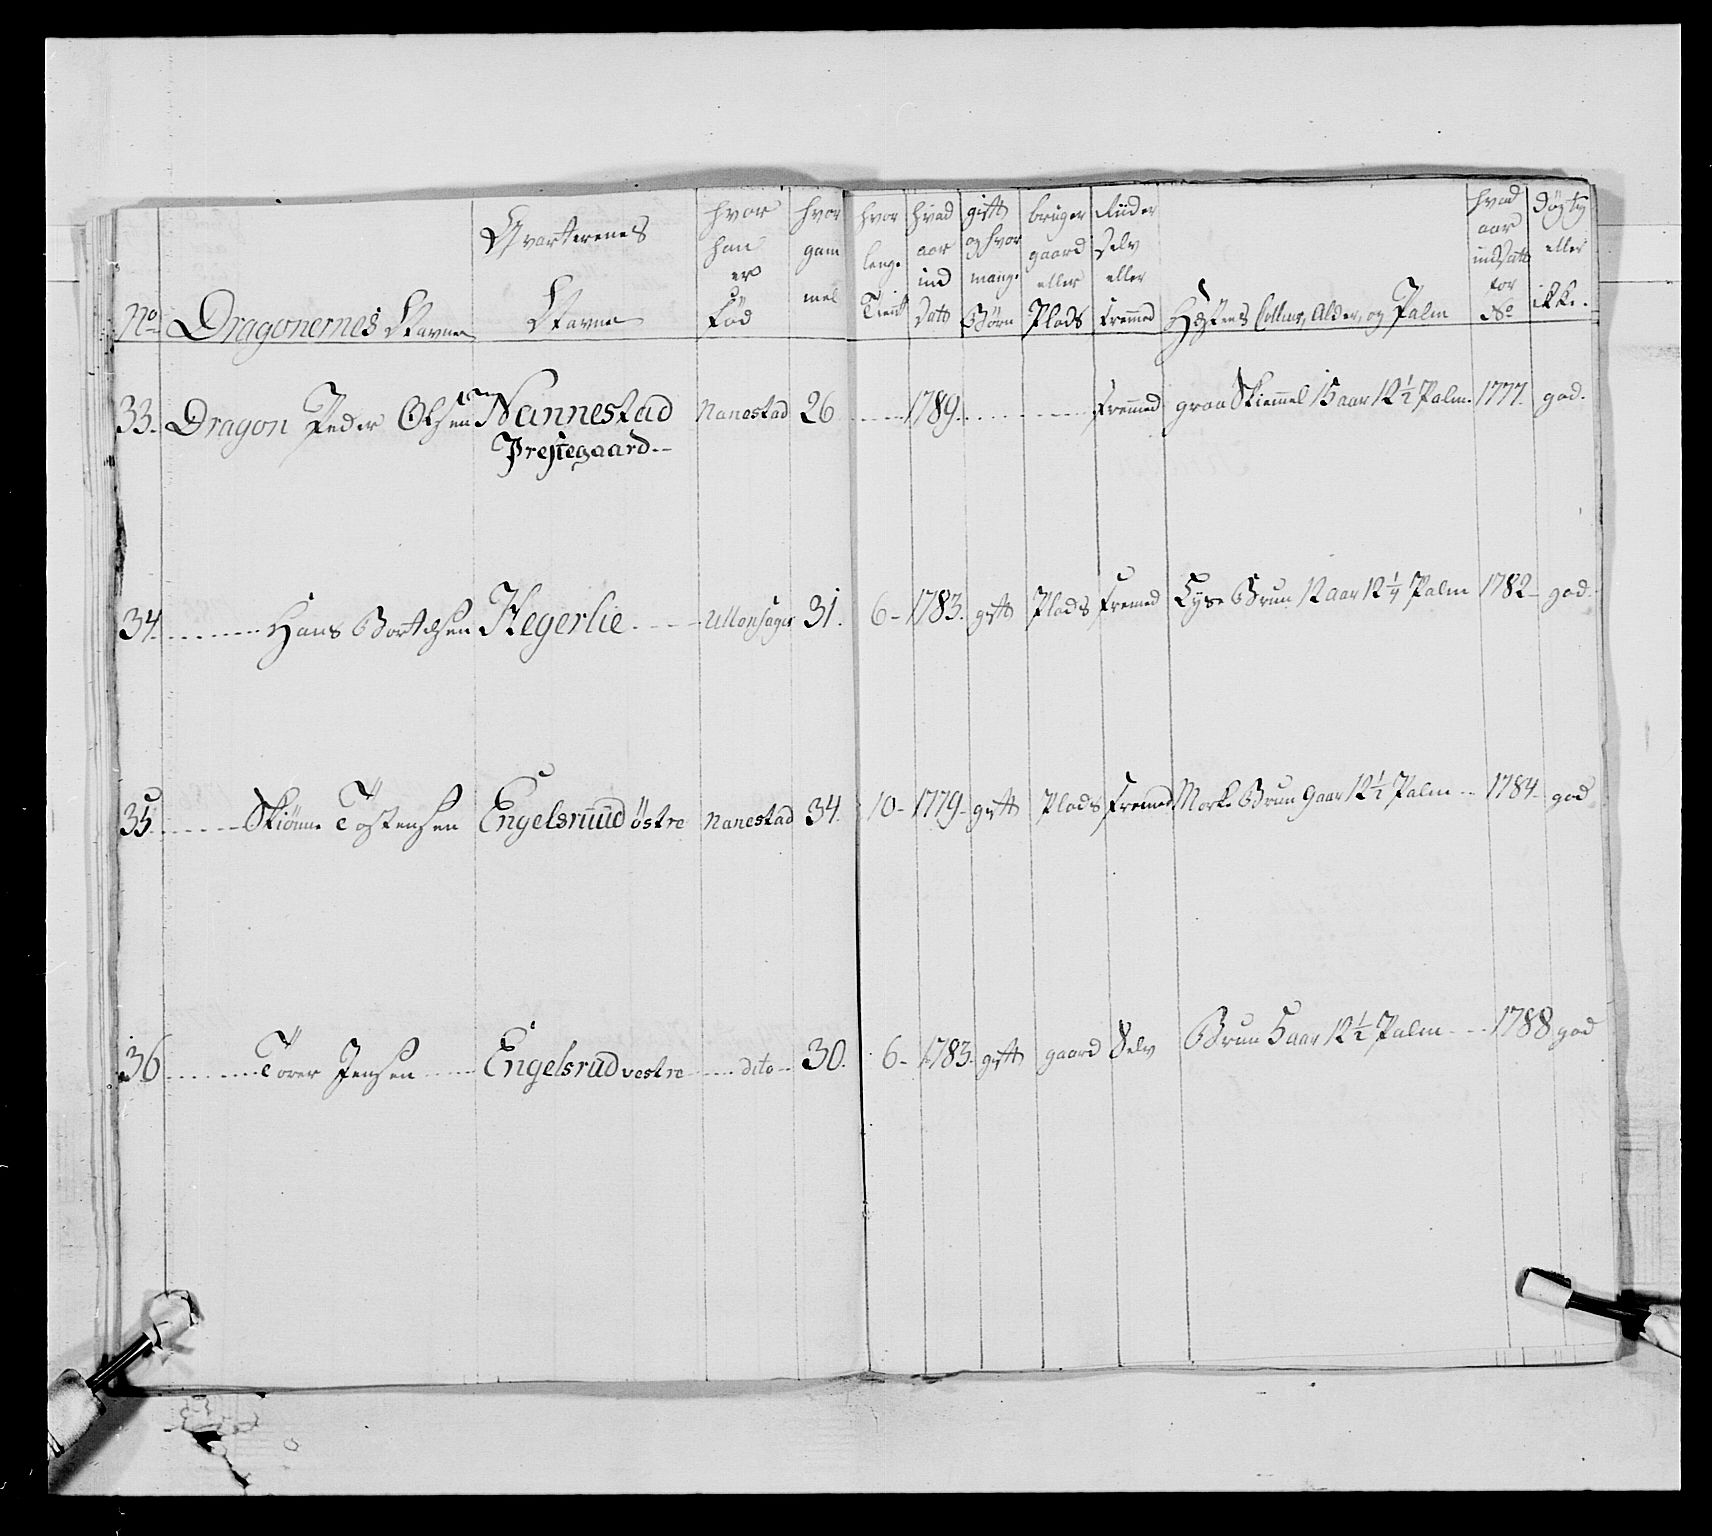 No Dragonernes Navne Qvarterenes Navne hvor han er Fød hvor gam mel hvor lenge Tient hvad aar ind Satt gift og hvor mange Børn bruger gaard eller Plads Riider Selv eller Fremmed Hæstens Colleur, Alder, og Palm hvad aar indsatt for No Døgtig eller ikke.
33. Dragon Peder Olsen Nannestad Nanestad 26 1789. Fremmed graa Skiemmel 15 aar 12 1/2 Palm. 1777. god.
Prestegaard.
34. Hans Bortelsen Hegerlie Ullensager 31. 6 1783. gift Plads Fremed Lyse Brun 12 aar 12 1/4 Palm 1782 god.
35. Skiønne Tostensen Engelsruud östre Nanestad 34. 10 1779 gift Plads Fremed Morke Brun 9 aar 12 1/2 Palm 1784 god
36 Torer Jensen Engelsrud vestre dito 30. 6 1783. gift gaard Selv Brun 5 aar 12 1/2 Palm 1788 god